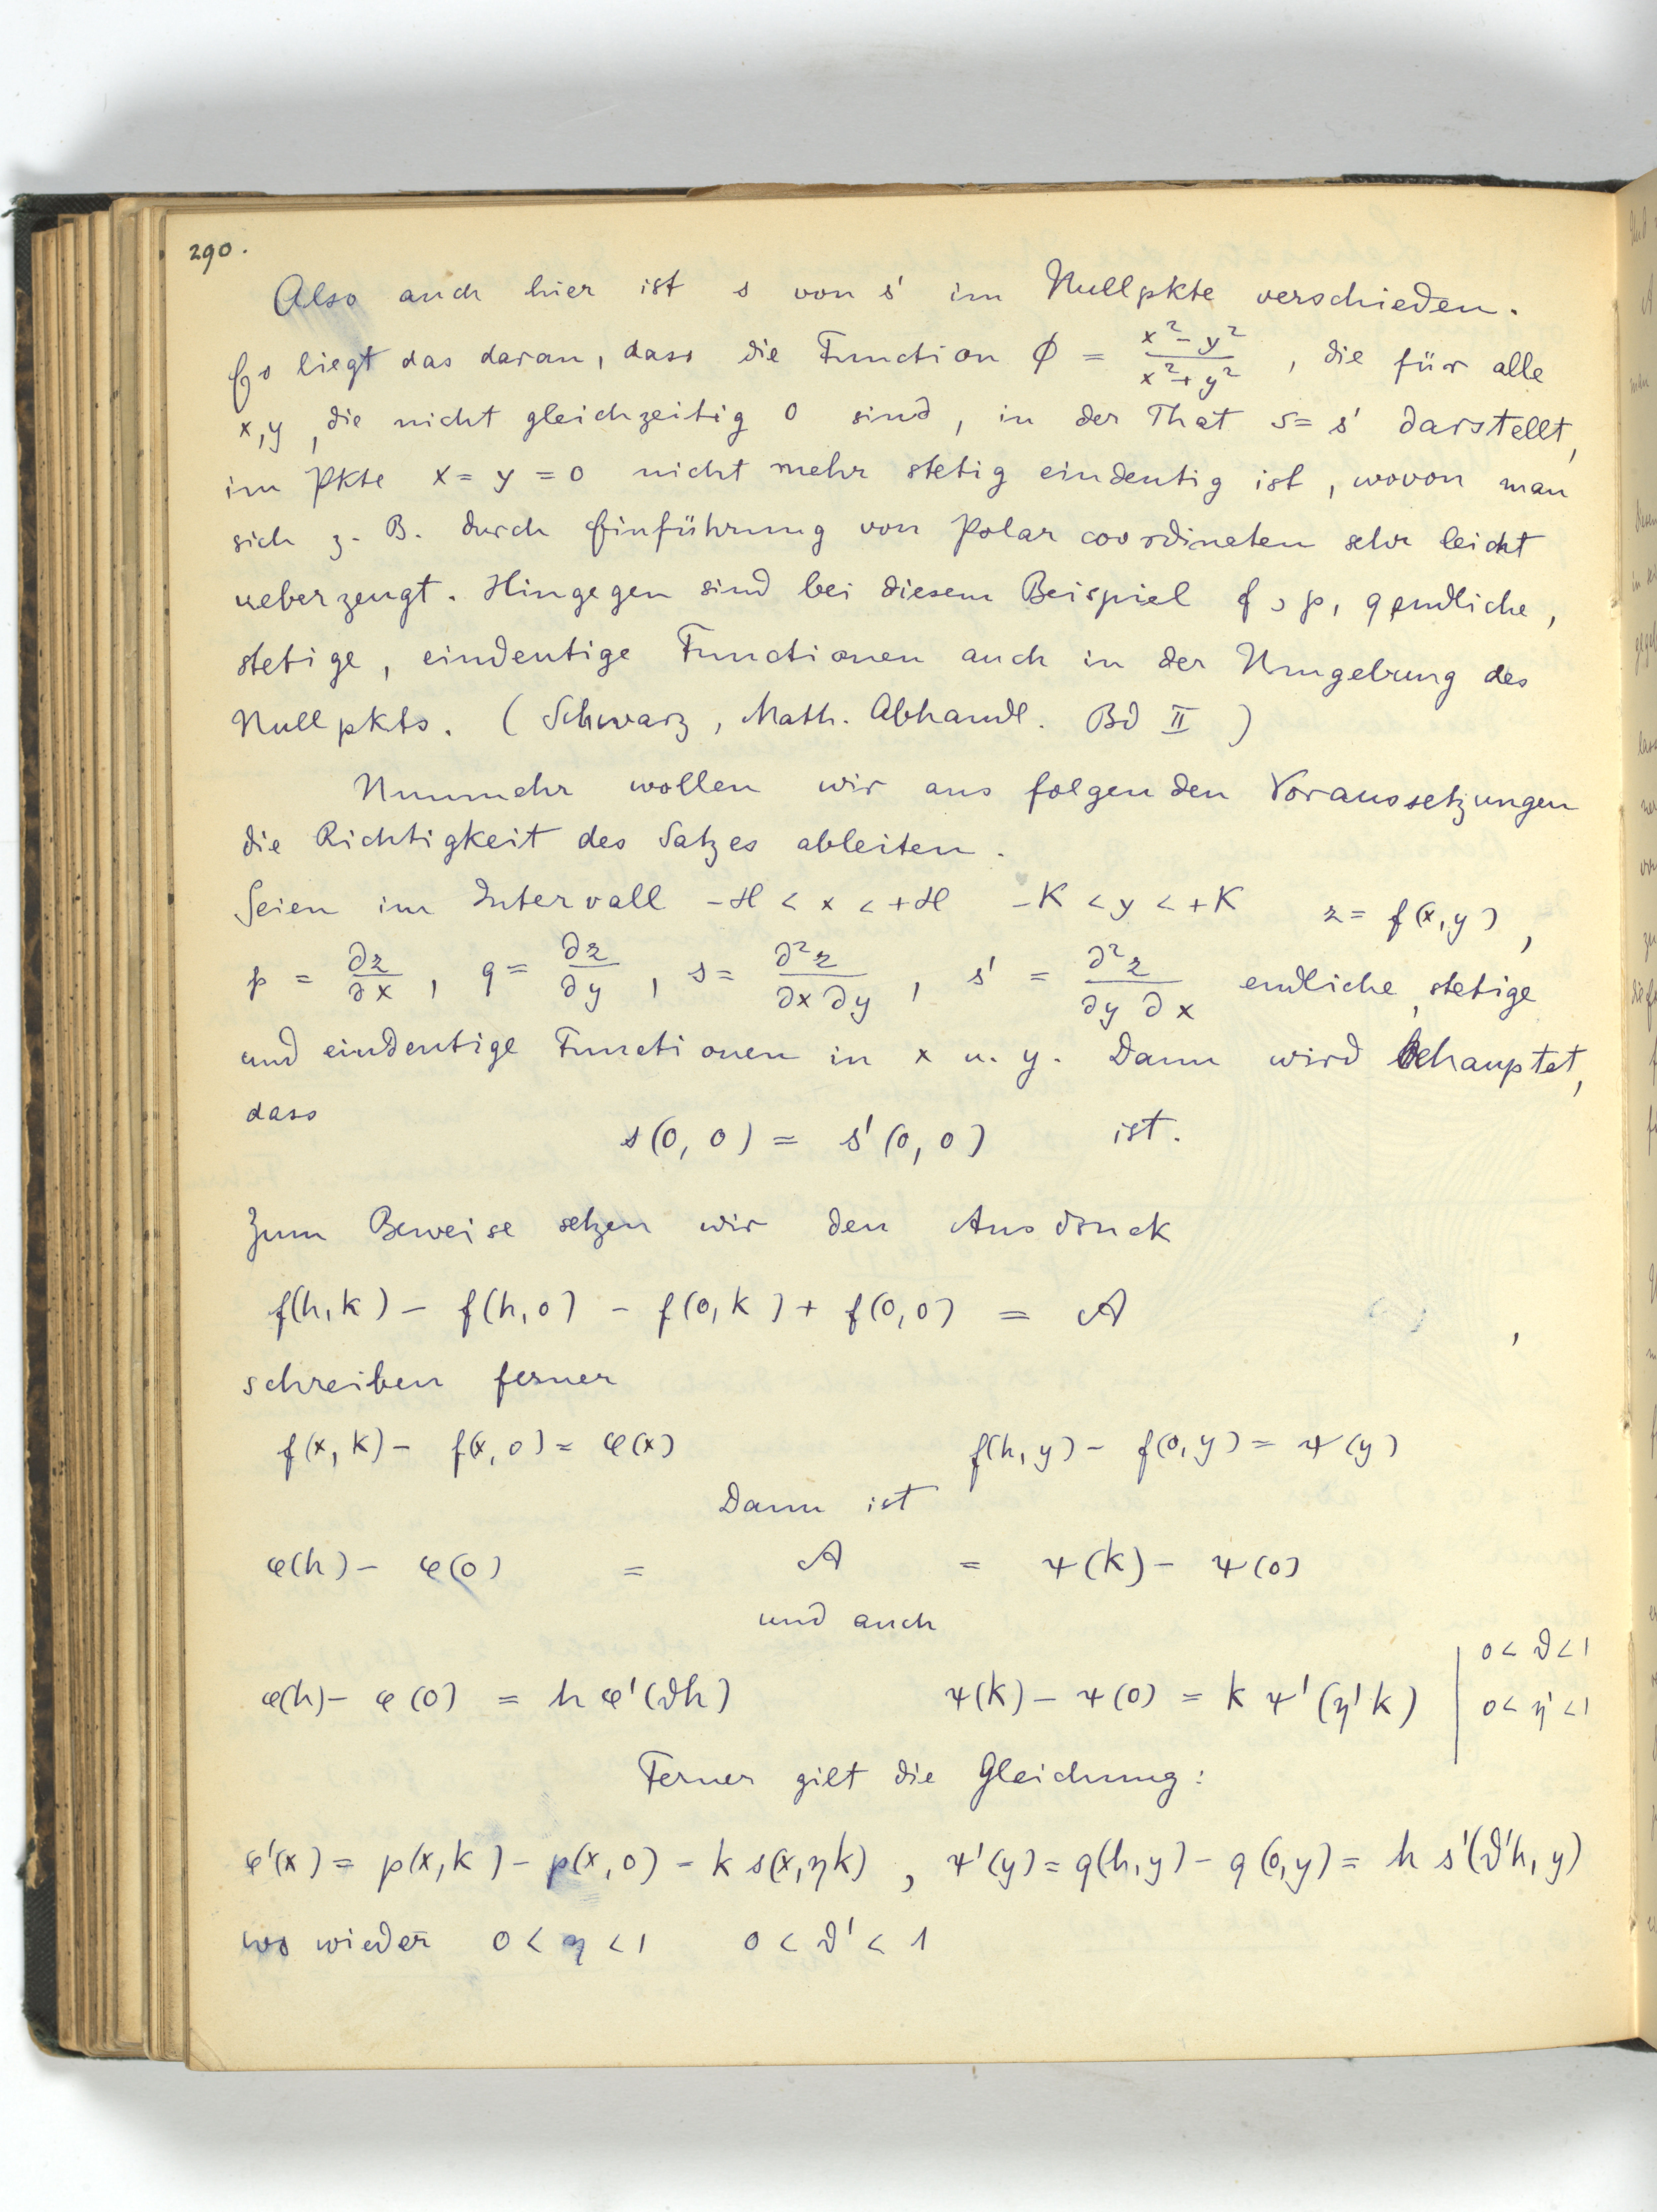 290.
Also auch hier ist s von s' im Nullpkte verschieden.
Es liegt das daran, dass die Function ϕ = (x² - y²)/(x² + y²), die für alle
x, y, die nicht gleichzeitig 0 sind, in der That s = s' darstellt,
im Pkte x = y = 0 nicht mehr stetig eindeutig ist, wovon man
sich z. B. durch Einführung von Polarcoordinaten sehr leicht
ueberzeugt. Hingegen sind bei diesem Beispiel f, p, q endliche,
stetige, eindeutige Functionen auch in der Umgebung des
Nullpkts. (Schwarz, Math. Abhandl. Bd II)
Nunmehr wollen wir aus folgenden Voraussetzungen
die Richtigkeit des Satzes ableiten.
Seien im Intervall -H < x < +H -K < y < +K z = f(x, y),
p = ∂z/∂x, q = ∂z/∂y, s = ∂²z/∂x∂y, s' = ∂²z/∂y∂x endliche, stetige
und eindeutige Functionen in x u. y. Dann wird behauptet,
dass
s(0, 0) = s'(0, 0) ist.
Zum Beweise setzen wir den Ausdruck
f(h, k) - f(h, 0) - f(0, k) + f(0, 0) = A,
schreiben ferner
f(x, k) - f(x, 0) = φ(x) f(h, y) - f(0, y) = ψ(y)
Dann ist
φ(h) - φ(0) = A = ψ(k) - ψ(0)
und auch
φ(h) - φ(0) = h φ'(ϑh) ψ(k) - ψ(0) = k ψ'(η'k) | 0 < ϑ < 1
0 < η' < 1
Ferner gilt die Gleichung:
φ'(x) = p(x, k) - p(x, 0) = k s(x, ηk), ψ'(y) = q(h, y) - q(0, y) = h s'(ϑ'h, y)
wo wieder 0 < η < 1 0 < ϑ' < 1